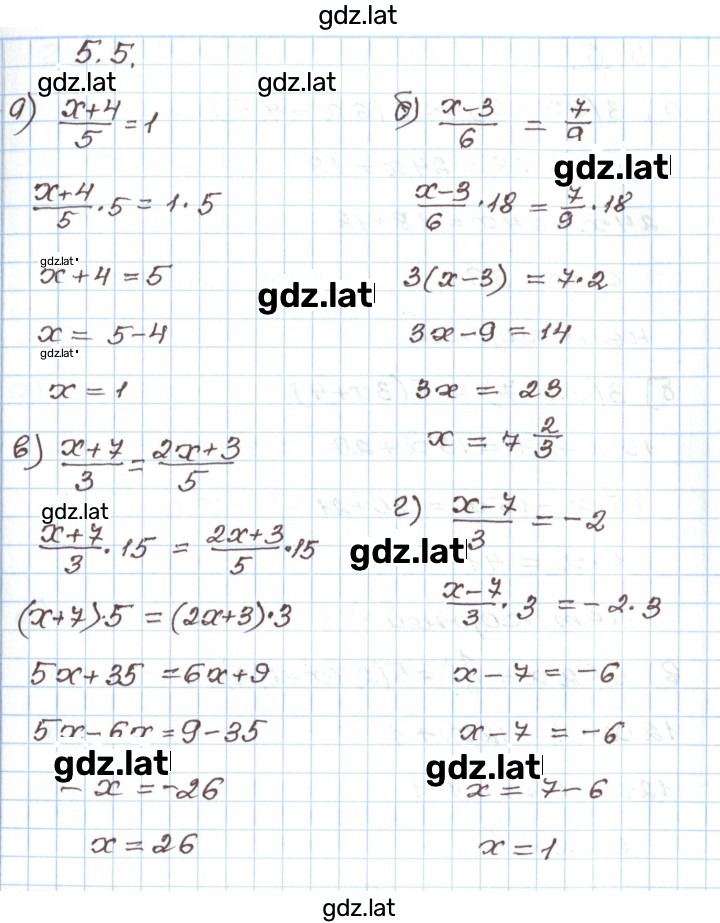 gdz.lat
5.5.
gdz.lat
gdz.lat
а) (x+4)/5 = 1
(x+4)/5 · 5 = 1 · 5
gdz.lat
x + 4 = 5
gdz.lat
x = 5 - 4
gdz.lat
x = 1
б) (x-3)/6 = 7/9
gdz.lat
(x-3)/6 · 18 = 7/9 · 18
3(x-3) = 7·2
3x - 9 = 14
3x = 23
x = 7 2/3
в) (x+7)/3 = (2x+3)/5
gdz.lat
(x+7)/3 · 15 = (2x+3)/5 · 15
(x+7)·5 = (2x+3)·3
5x + 35 = 6x + 9
5x - 6x = 9 - 35
gdz.lat
- x = -26
x = 26
г) (x-7)/3 = -2
gdz.lat
(x-7)/3 · 3 = -2 · 3
x - 7 = -6
x - 7 = -6
gdz.lat
x = 7 - 6
x = 1
gdz.lat